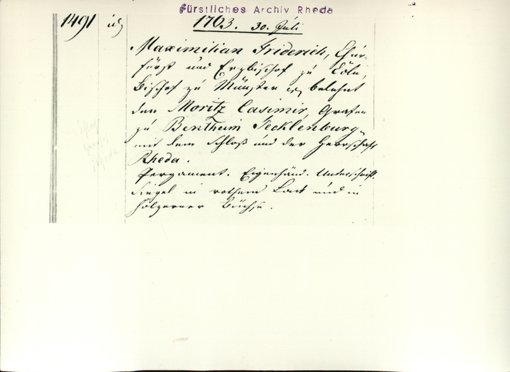 Fürstliches Archiv Rheda
1491 1703. 30. Juli
Maximilian Friderich, Chur-
fürst und Erzbischof zu Cöln,
Bischof zu Münster belehnt
den Moritz Casimir, Grafen
zu Bentheim Tecklenburg
mit dem Schloß und der Herrschaft
Rheda.
Pergament. Eigenhänd. Unterschrift.
Siegel in rothem Lack und in
hölzerner Büchse.